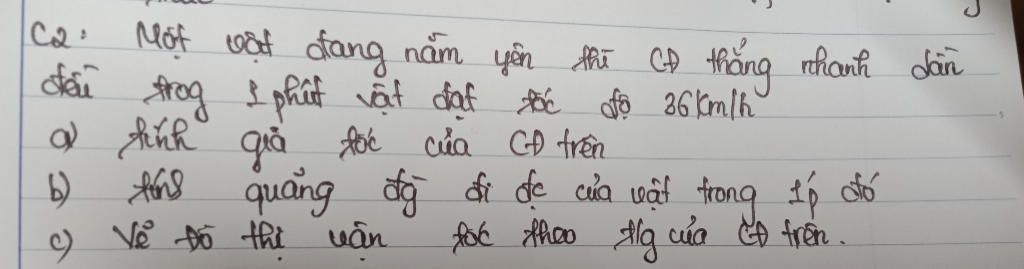 C2: Một vật đang nằm yên thì CĐ thẳng nhanh dần
đều trog 1 phút vật đạt tốc độ 36km/h
a) tính gia tốc của CĐ trên
b) tính quãng đg đi đc của vật trong 1p đó
c) Vẽ đồ thị vận tốc theo t/g của CĐ trên.